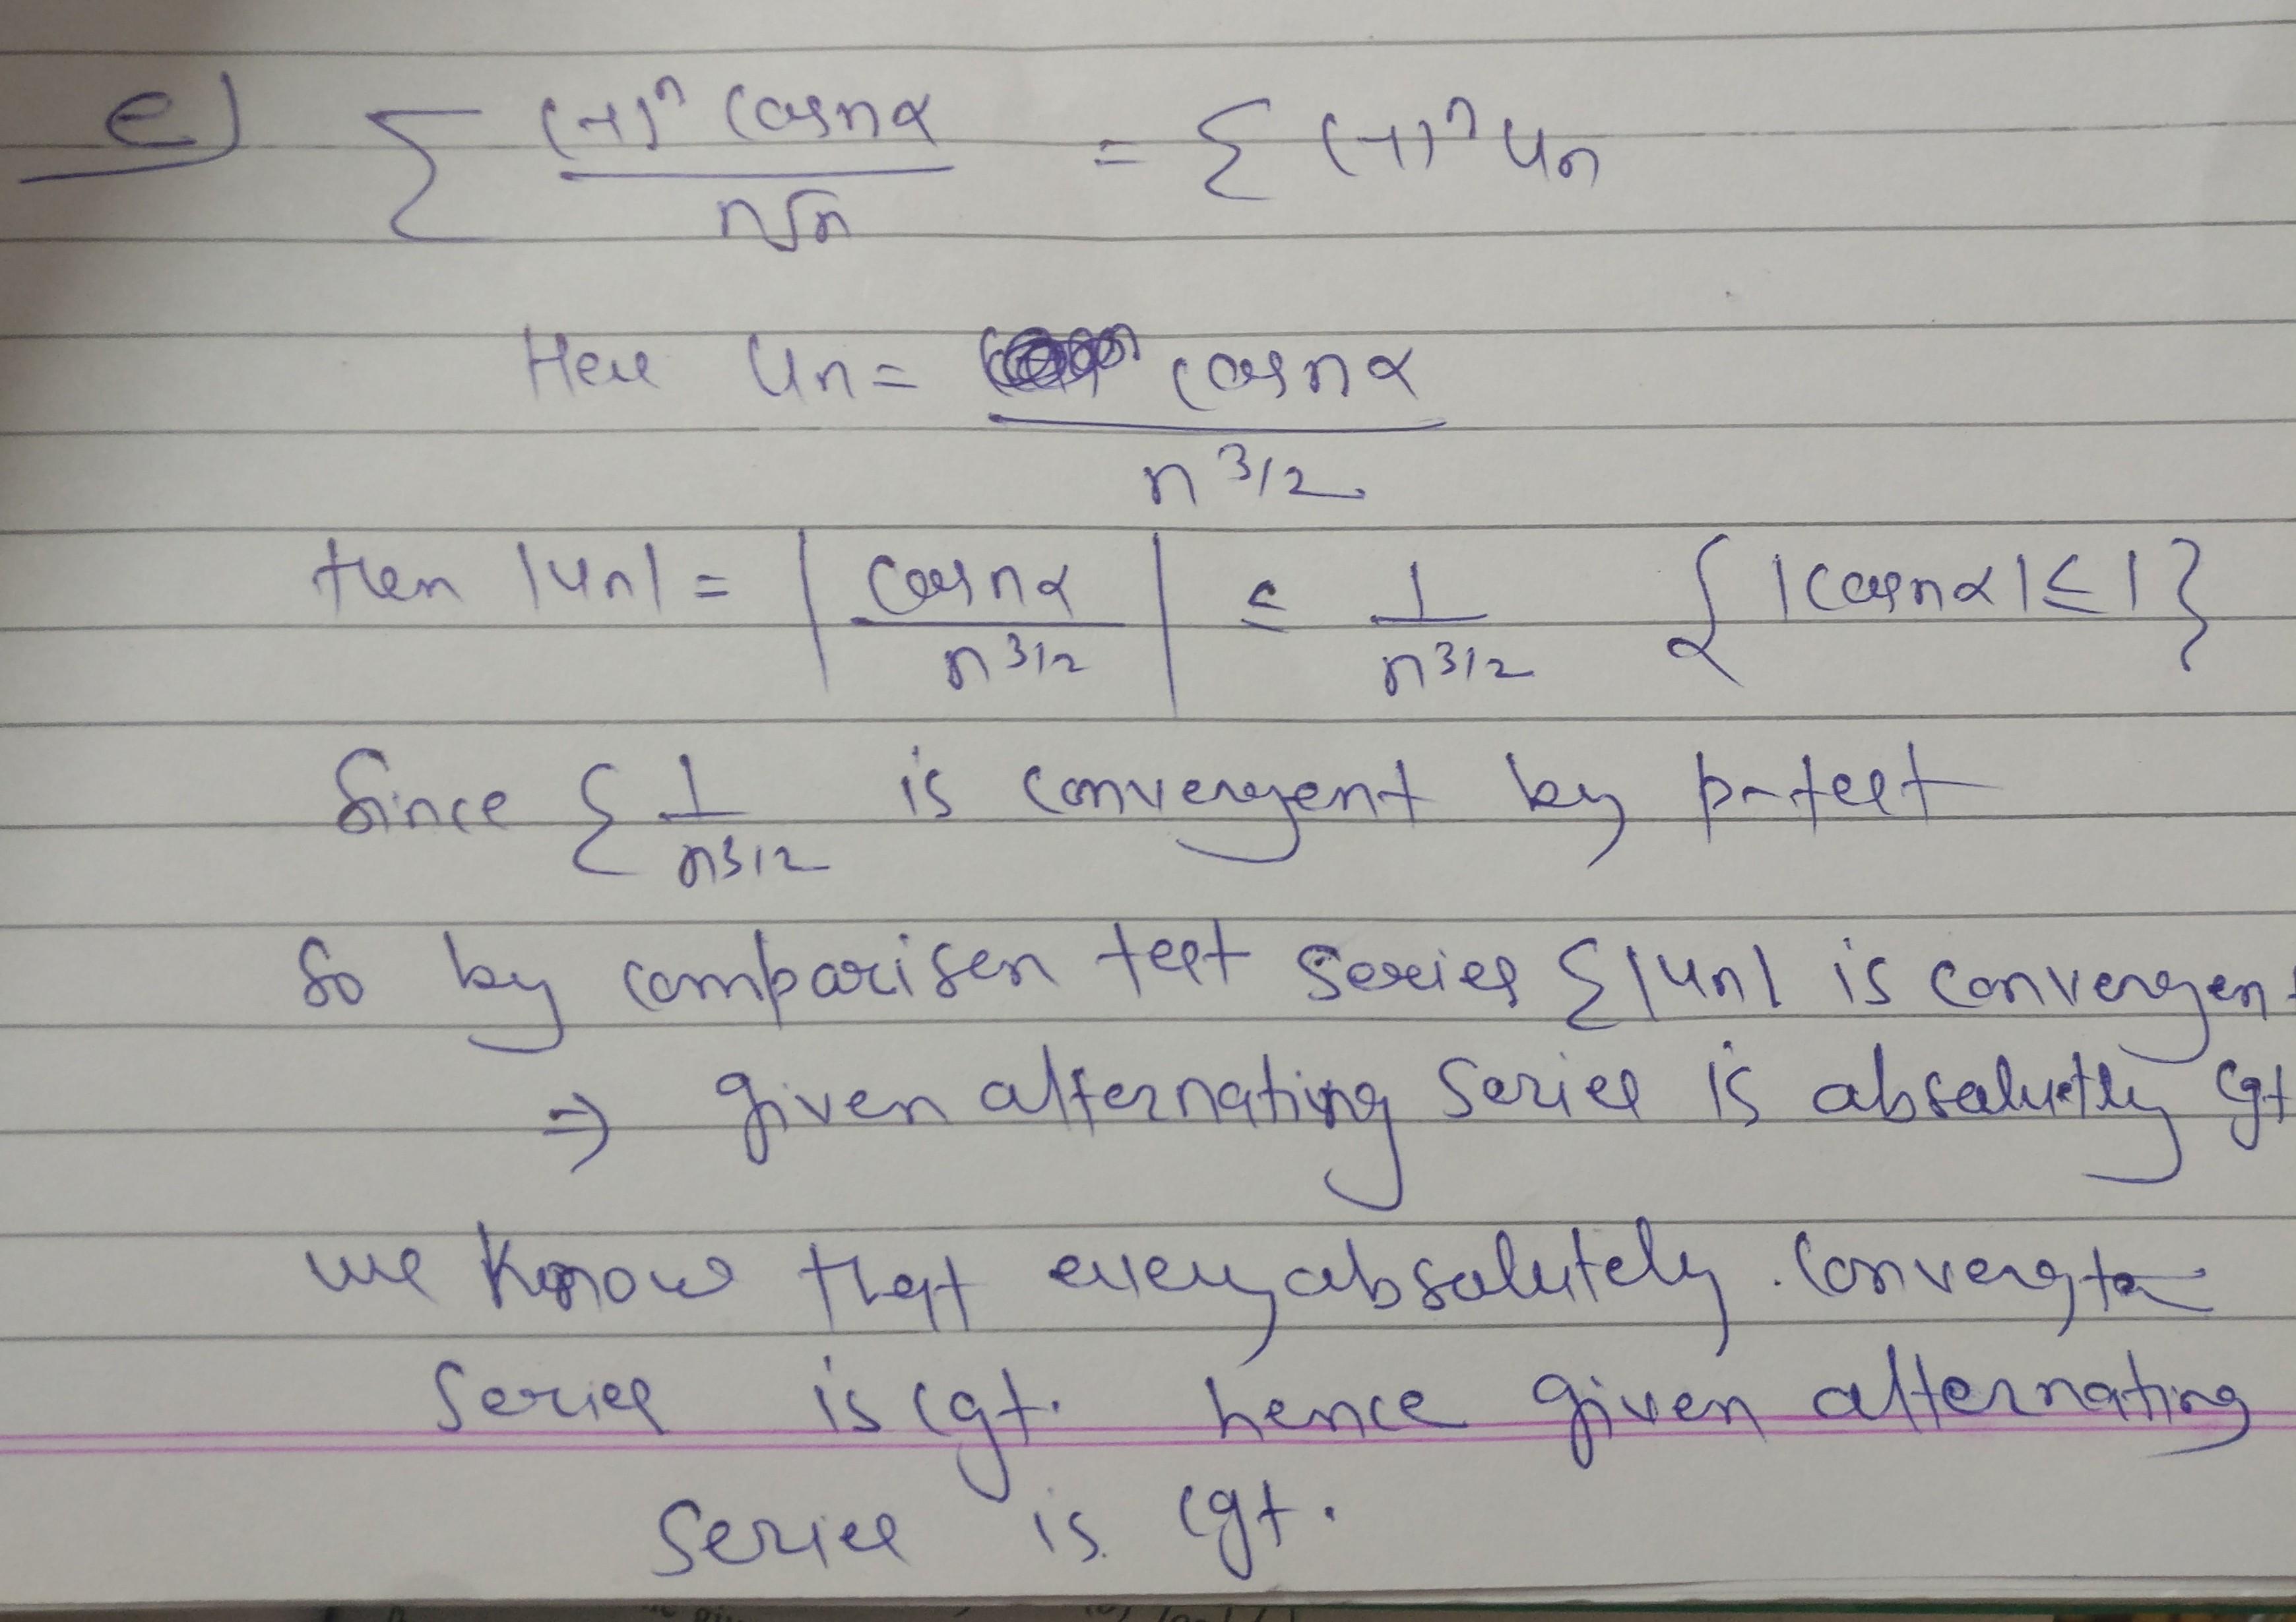 e) Σ (-1)ⁿ cosnα / n√n = Σ (-1)ⁿ un
Here un = cosnα / n^3/2
then |un| = | cosnα / n^3/2 | ≤ 1 / n^3/2 { |cosnα| ≤ 1 }
Since Σ 1 / n^3/2 is convergent by p-test
So by comparison test series Σ|un| is convergent
⇒ given alternating series is absolutely cgt
we know that every absolutely convergt
series is cgt. hence given alternating
series is cgt.